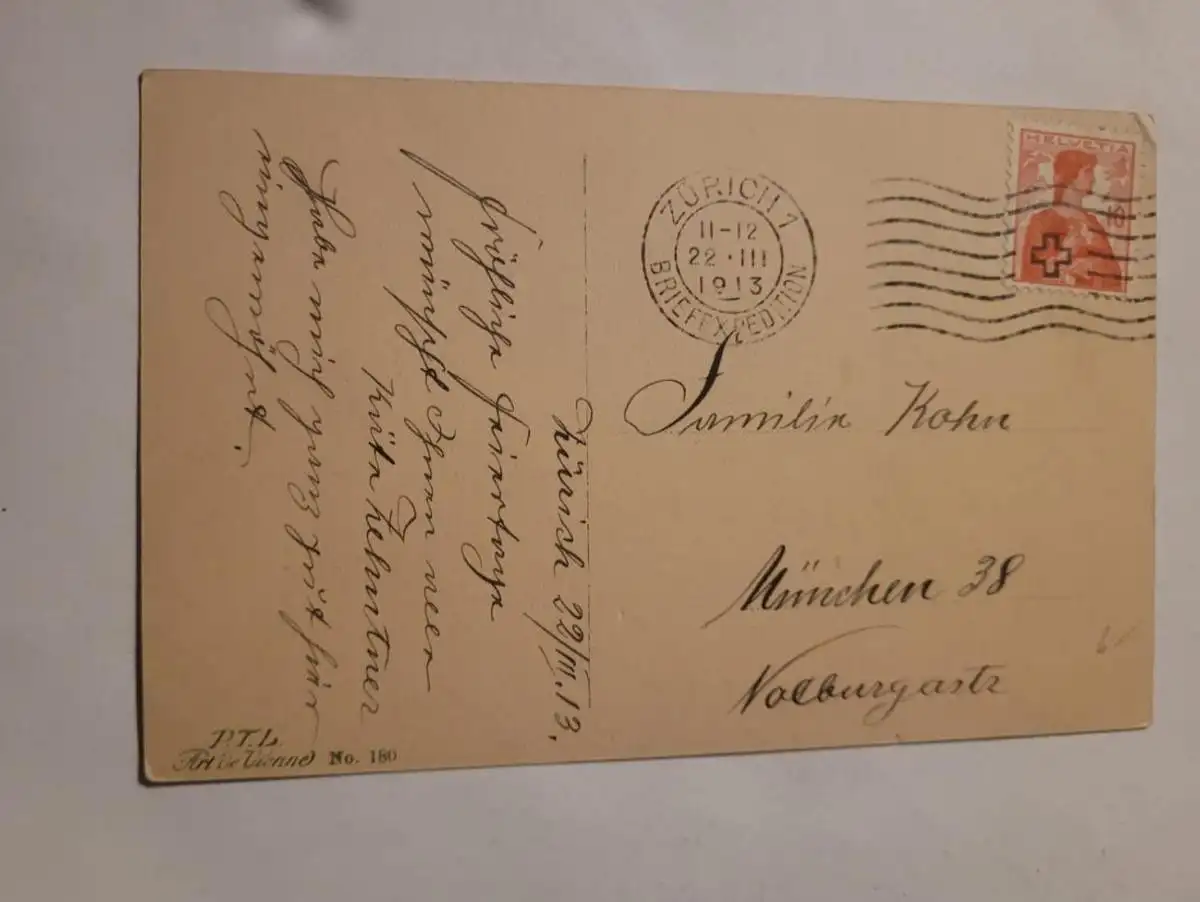 Zürich 22/III.13.
Fröhliche Feiertage
wünscht Ihnen allen
Käte Lehntner
Habe mich ganz gut hier
eingewöhnt.
ZÜRICH 1
11-12
22·III
1913
BRIEFEXPEDITION
HELVETIA
Familie Kohn
München 38
P.T.L.
Art de Vienne No. 180